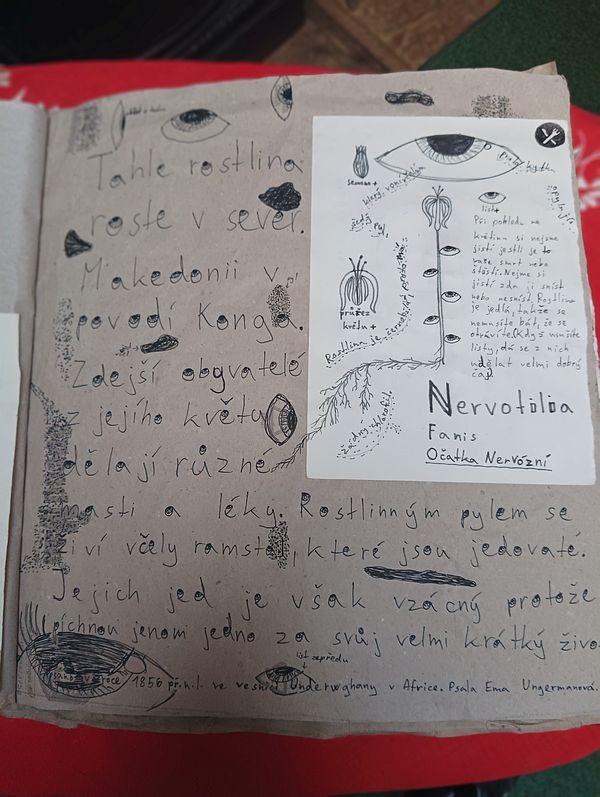 Tahle rostlina
roste v sever.
Makedonii v
povodí Konga.
Zdejší obyvatelé
z jejího květu
dělají různé
masti a léky. Rostlinným pylem se
živí včely ramst, které jsou jedovaté.
Jejich jed je však vzácný protože
píchnou jenom jedno za svůj velmi krátký živo
list zepředu
1856 př.n.l. ve vesnici Underwghany v Africe. Psala Ema Ungermanová.
semeno +
který voní
jedlý
pyl
kytka
opyluje
list +
Při pohledu na
květinu si nejsme
jistí jestli je to
vaše smrt nebo
štěstí. Nejme si
jistí zda ji sníst
nebo nesníst. Rostlina
je jedlá, takže se
nemusíte bát, že se
otrávíte. Když usušíte
listy, dá se z nich
udělat velmi dobrý
čaj
průřez
květu +
Rostlina je červenobílá protože
žádný chlorofil.
Nervotilia
Fanis
Očatka Nervózní